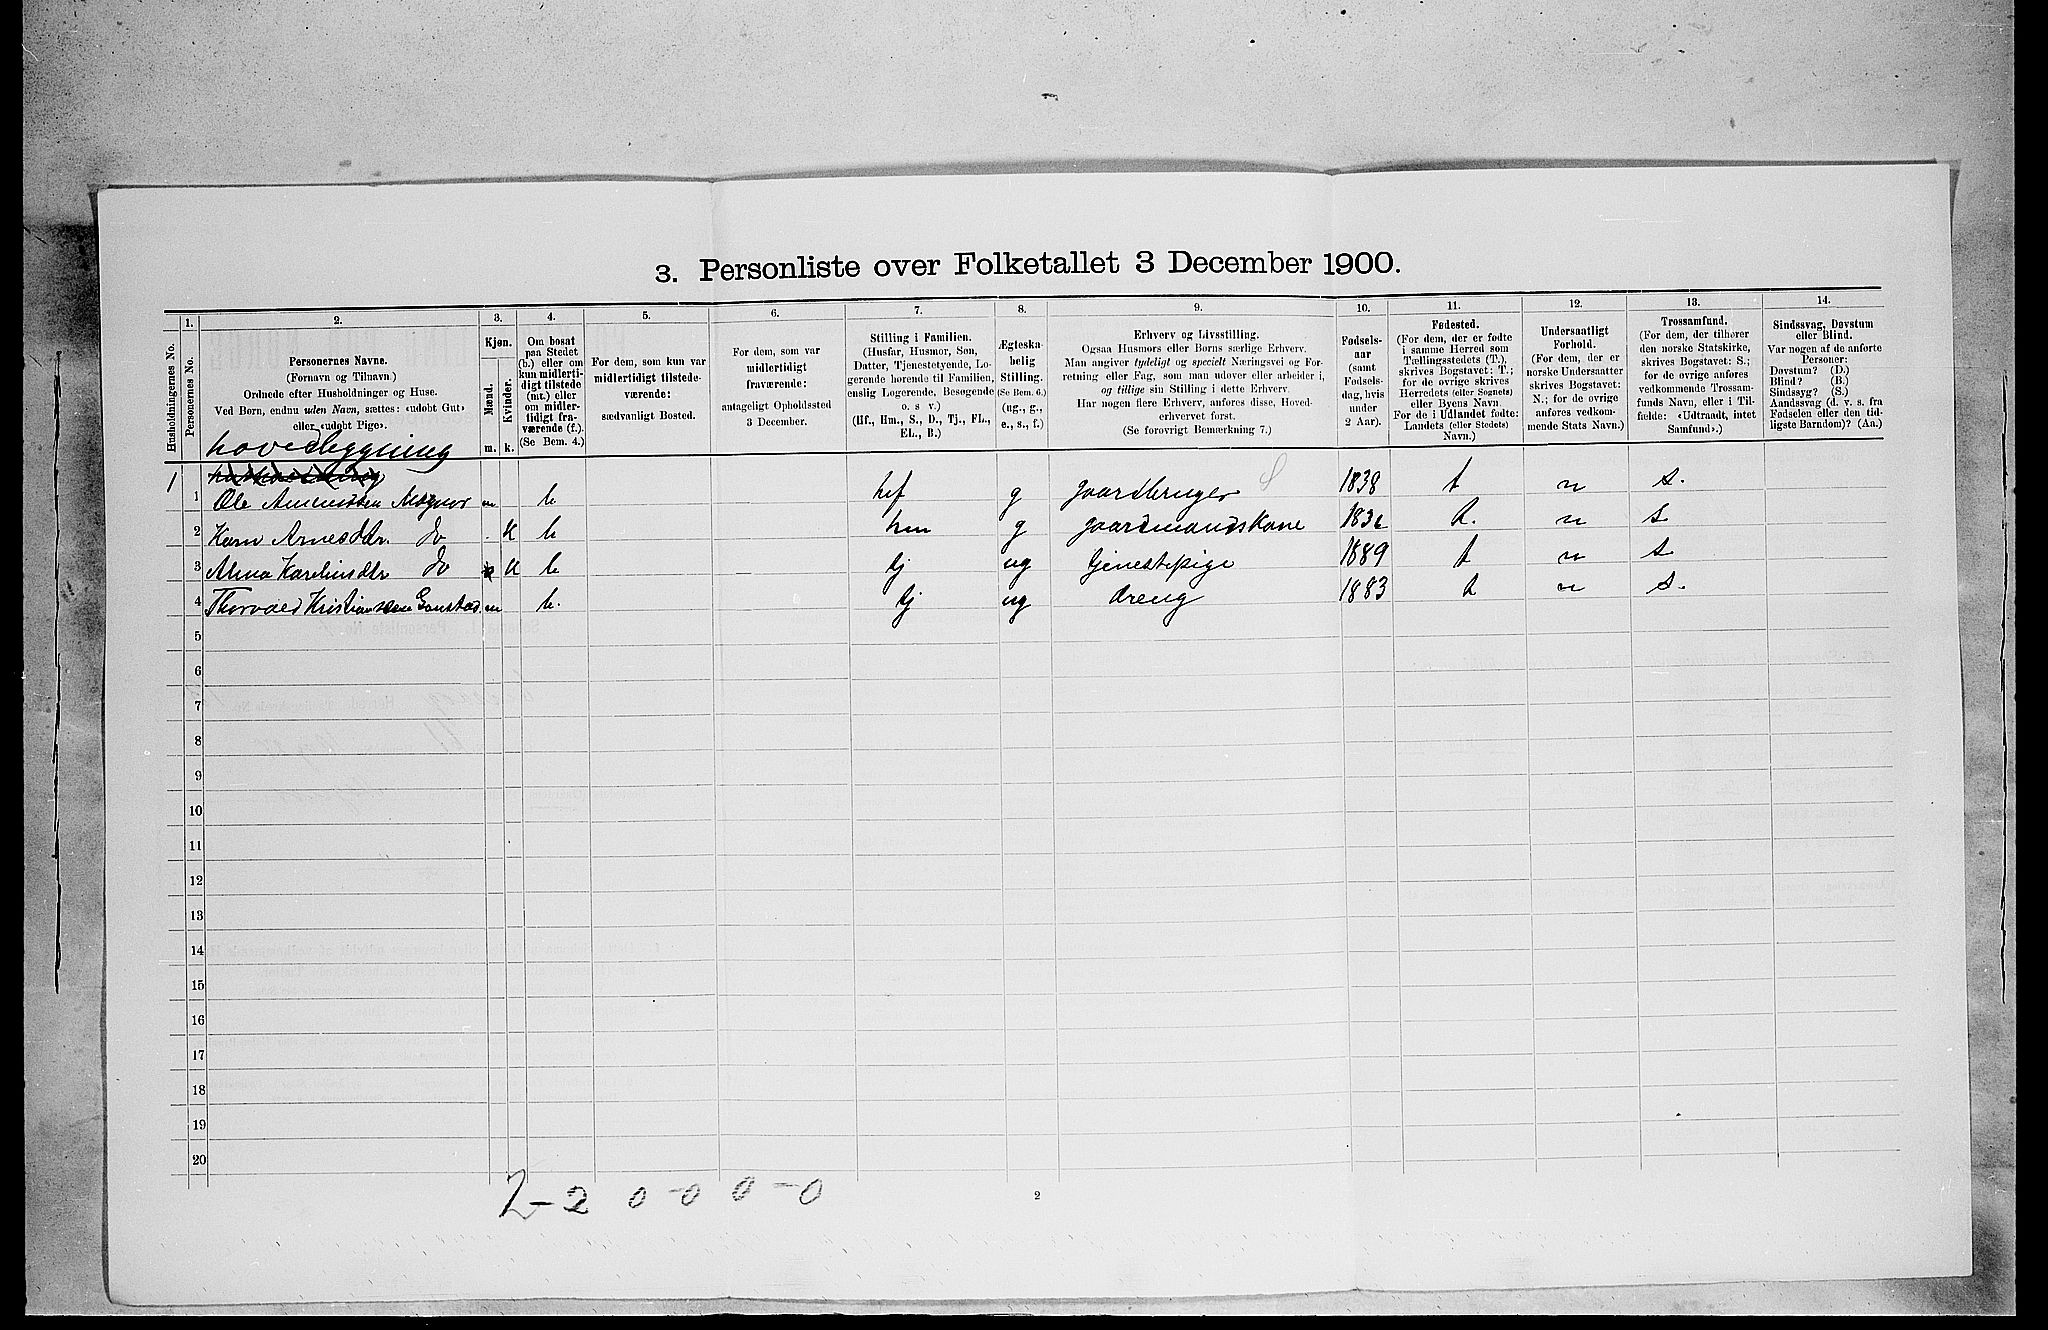 3. Personliste over Folketallet 3 December 1900.
1. 2. 3. 4. 5. 6. 7. 8. 9. 10. 11. 12. 13. 14.
Husholdningernes No.
Personernes No.
Personernes Navne.
(Fornavn og Tilnavn.)
Ordnede efter Husholdninger og Huse.
Ved Børn, endnu uden Navn, sættes: «udøbt Gut»
eller «udøbt Pige».
Kjøn.
Mænd.
Kvinder.
m. k.
Om bosat
paa Stedet
(b.) eller om
kun midlerti-
digt tilstede
(mt.) eller
om midler-
tidigt fra-
værende (f.).
(Se Bem. 4.)
For dem, som kun var
midlertidigt tilstede-
værende:
sædvanligt Bosted.
For dem, som var
midlertidigt
fraværende:
antageligt Opholdssted
3 December.
Stilling i Familien.
(Husfar, Husmor, Søn,
Datter, Tjenestetyende, Lo-
gerende hørende til Familien,
enslig Logerende, Besøgende
o. s v.)
(Hf., Hm., S., D., Tj., FL.,
EL., B.)
Ægteska-
belig
Stilling.
(Se Bem. 6.)
(ug., g.,
e., s., f.)
Erhverv og Livsstilling.
Ogsaa Husmors eller Børns særlige Erhverv.
Man angiver tydeligt og specielt Næringsvei og For-
retning eller Fag, som man udøver eller arbeider i,
og tillige sin Stilling i dette Erhverv.
Har nogen flere Erhverv, anføres disse, Hoved-
erhvervet først.
(Se forøvrigt Bemærkning 7.)
Fødsels-
aar
(samt
Fødsels-
dag, hvis
under
2 Aar).
Fødested.
(For dem, der er fødte
i samme Herred som
Tællingsstedets (T.),
skrives Bogstavet: T.;
for de øvrige skrives
Herredets (eller Sognets)
eller Byens Navn.
For de i Udlandet fødte:
Landets (eller Stedets)
Navn.)
Undersaatligt
Forhold.
(For dem, der er
norske Undersaatter
skrives Bogstavet:
N.; for de øvrige
anføres vedkom-
mende Stats Navn.)
Trossamfund.
(For dem, der tilhører
den norske Statskirke,
skrives Bogstavet: S.;
for de øvrige anføres
vedkommende Trossam-
funds Navn, eller i Til-
fælde: «Udtraadt, intet
Samfund».)
Sindssvag, Døvstum
eller Blind.
Var nogen af de anførte
Personer:
Døvstum? (D.)
Blind? (B.)
Sindssyg? (S.)
Aandssvag (d. v. s. fra
Fødselen eller den tid-
ligste Barndom)? (Aa.)
hovedbygning
1
1 Ole Amundsen m b hf g gaardbruger 1838 t n s.
2 Karn Arnesdtr. do k b hm g gaardmandskone 1836 t. n s
3 Alma Kareliusdtr do k b tj ug tjenestepige 1889 t n s
4 Thorvald Kristiansen m b. tj ug dreng 1883 t n s.
5
6
7
8
9
10
11
12
13
14
15
16
17
18
19
20
2-2 0-0 0-0
2